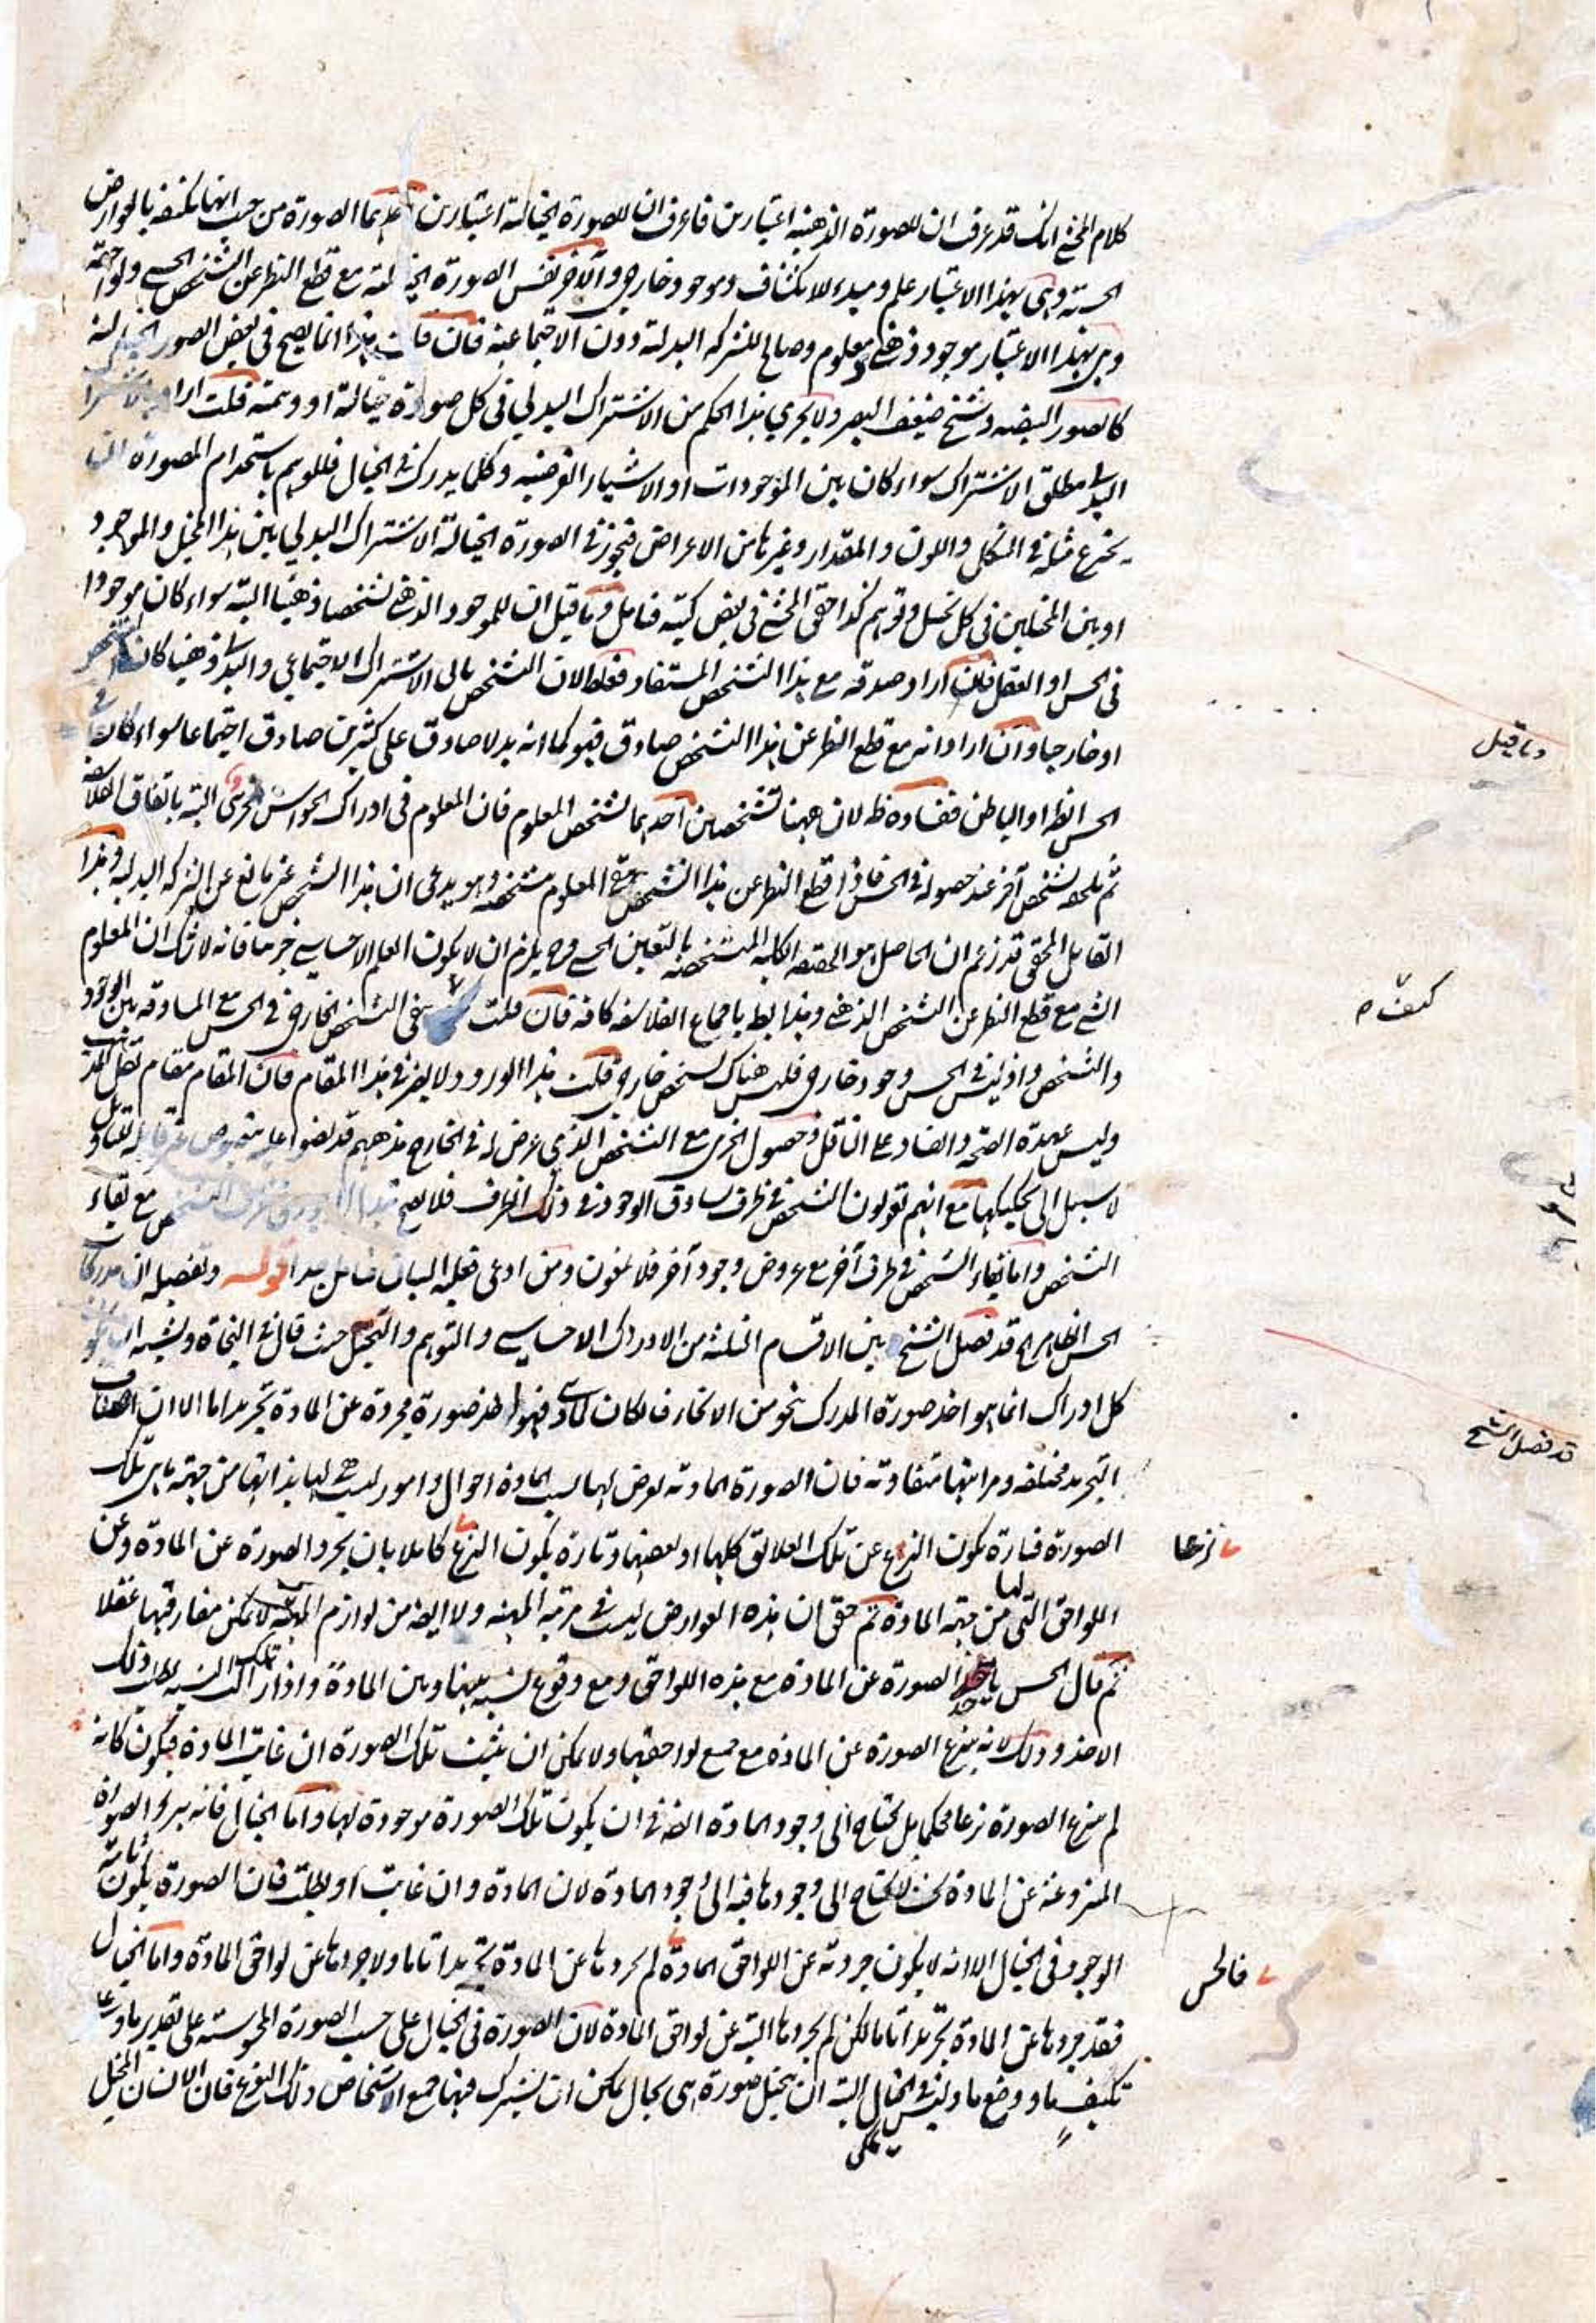 كلام المحشي انك قد عرفت ان للصورة الذهنية اعتبارين فاعرف ان للصورة الخيالية اعتبارين احدهما الصورة من حيث انها مكتنفة بالعوارض
الحسية وهي بهذا الاعتبار علم ومبدء للانكشاف وموجود خارجي والآخر نفس الصورة الخيالية مع قطع النظر عن التشخص الحسي ولواحقه
وهي بهذا الاعتبار موجود ذهني ومعلوم وصالح للشركة البدلية دون الاجتماعية فان قلت هذا انما يصح في بعض الصور الخيالية
كالصور البيضه وشبح ضعيف البصر ولا يجري هذا الحكم من الاشتراك البدلي في كل صورة خيالية او وهمية قلت اراد بالاشتراك
البدلي مطلق الاشتراك سواء كان بين الموجودات او الاشياء الفرضية وكلما يدرك في الخيال فللوهم باستخدام المصورة ان
يخترع مثله في الشكل واللون والمقدار وغيرها من الاعراض فيجوز في الصورة الخيالية الاشتراك البدلي بين هذا المخيل والموجود
او بين المخيلين في كل تخيل وتوهم كذا حقق المحشي في بعض كتبه فتامل وما قيل ان للموجود الذهني تشخصا ذهنيا البتة سواء كان موجودا
في الحس او العقل فان اراد صدقه مع هذا التشخص المستفاد فغلط لان التشخص يابى الاشتراك الاجتماعي والبدلي ذهنيا كان التشخص
او خارجيا وان اراد انه مع قطع النظر عن هذا التشخص صادق فهو كما انه بدلا صادق على كثيرين صادق اجتماعا سواء كان في
الحس الظاهر او الباطن ففساده ظ لان ههنا تشخصين احدهما تشخص المعلوم فان المعلوم في ادراك الحواس جزئي البتة باتفاق الفلاسفة
ثم يلحقه تشخص آخر عند حصوله في الحس فاذا قطع النظر عن هذا التشخص بقي المعلوم متشخصه وهو يدعى ان هذا التشخص غير مانع عن الشركة البدلية وهذا
القائل المحقق قد زعم ان الحاصل هو الحقيقة الكلية المتشخصة بالتعين الحسي وح يلزم ان لا يكون العلم الاحساسي جزئيا فانه لا شك ان المعلوم
الشي مع قطع النظر عن التشخص الذهني وهذا بط باجماع الفلاسفة كافة فان قلت يبقى التشخص الخارجي في الحس مع المساوقة بين الوجود
والتشخص واذ ليس في الحس وجود خارجي فليس هناك تشخص خارجي قلت هذا الورود لا يضر في هذا المقام فان المقام مقام نقل المذهب
وليس عهدة الصحة والفساد على الناقل وحصول الجزئي مع التشخص الذي عرض له في الخارج مذهبهم قد نصوا عليه بنصوص غير قابلة للتاويل
لا سبيل الى تحكيكها مع انهم يقولون التشخص في ظرف يساوق الوجود في ذلك الظرف فلا يصح مع بقاء
التشخص واما بقاء التشخص في ظرف آخر مع عروض وجود آخر فلا يمنعون ومن ادعى فعليه البيان فتامل جدا قوله وتفصيله ان مدركات
الحس الظاهر الخ قد فصل الشيخ بين الاقسام الثلثة من الادراك الاحساسي والتوهم والتخيل حيث قال في النجاة ويشبه ان يكون
كل ادراك انما هو اخذ صورة المدرك بنحو من الانحاء فان كان لمادي فهو اخذ صورة مجردة عن المادة تجريدا ما الا ان اصناف
التجريد مختلفة ومراتبها متفاوتة فان الصورة المادية تعرض لها بسبب المادة احوال وامور ليست هي لها بذاتها من جهة ما هي تلك
الصورة فتارة يكون النزع عن تلك العلائق كلها او بعضها وتارة يكون النزع كاملا بان يجرد الصورة عن المادة وعن
اللواحق التي لها من جهة المادة ثم حقق ان هذه العوارض ليست في مرتبة المهية ولا ايضا من لوازم المهية لا يمكن مفارقتها عقلا
ثم قال الحس ياخذ الصورة عن المادة مع هذه اللواحق ومع وقوع نسبة بينها وبين المادة واذا زالت تلك النسبة بطل ذلك
الاخذ وذلك لانه ينزع الصورة عن المادة مع جميع لواحقها ولا يمكن ان يثبت تلك الصورة ان غابت المادة فيكون كانه
لم ينزع الصورة نزعا محكما بل يحتاج الى وجود المادة ايضا في ان يكون تلك الصورة موجودة لها واما الخيال فانه يبرء الصورة
المنزوعة عن المادة بحيث لا يحتاج الى وجودها فيه الى وجود المادة لان المادة وان غابت او بطلت فان الصورة يكون ثابتة
الوجود في الخيال الا انه لا يكون جردته عن اللواحق المادية لم يجردها عن المادة تجريدا تاما ولا جردها عن لواحق المادة واما الخيال
فقد جردها عن المادة تجريدا تاما لكن لم يجردها البتة عن لواحق المادة لان الصورة في الخيال على حسب الصورة المحسوسة على تقدير ما وعلى
تكييف ما ووضع ما وليس في الخيال البتة ان يتخيل صورة هي بحال يمكن ان يشترك فيها جميع الاشخاص ذلك النوع فان الانسان المتخيل
يمكن
وما قيل
كيف م
قد فصل الشيخ
نزعا
فالحس